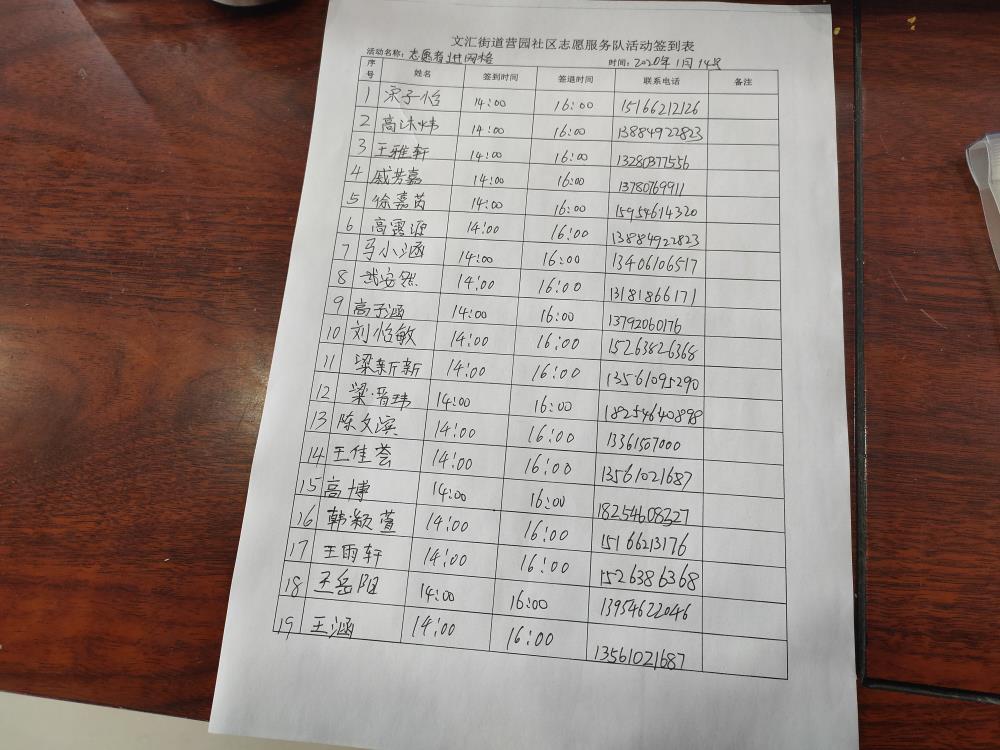 文汇街道营园社区志愿服务队活动签到表
活动名称：志愿者进网格 时间：2020年1月14号
序号 姓名 签到时间 签退时间 联系电话 备注
1 宋子怡 14:00 16:00 15166212126
2 高沐炜 14:00 16:00 13884922823
3 王雅轩 14:00 16:00 13280377556
4 戚芳嘉 14:00 16:00 13780769911
5 徐嘉芮 14:00 16:00 15954614320
6 高露源 14:00 16:00 13884922823
7 马小涵 14:00 16:00 13406106517
8 武安然 14:00 16:00 13181866171
9 高子涵 14:00 16:00 13792060176
10 刘怡敏 14:00 16:00 15263826368
11 梁新新 14:00 16:00 13561095290
12 梁晋玮 14:00 16:00 18254640898
13 陈文滨 14:00 16:00 13361507000
14 王佳荟 14:00 16:00 13561021687
15 高博 14:00 16:00 18254608327
16 韩颖萱 14:00 16:00 15166213176
17 王雨轩 14:00 16:00 1526386368
18 王岳阳 14:00 16:00 13954622046
19 王涵 14:00 16:00 13561021687